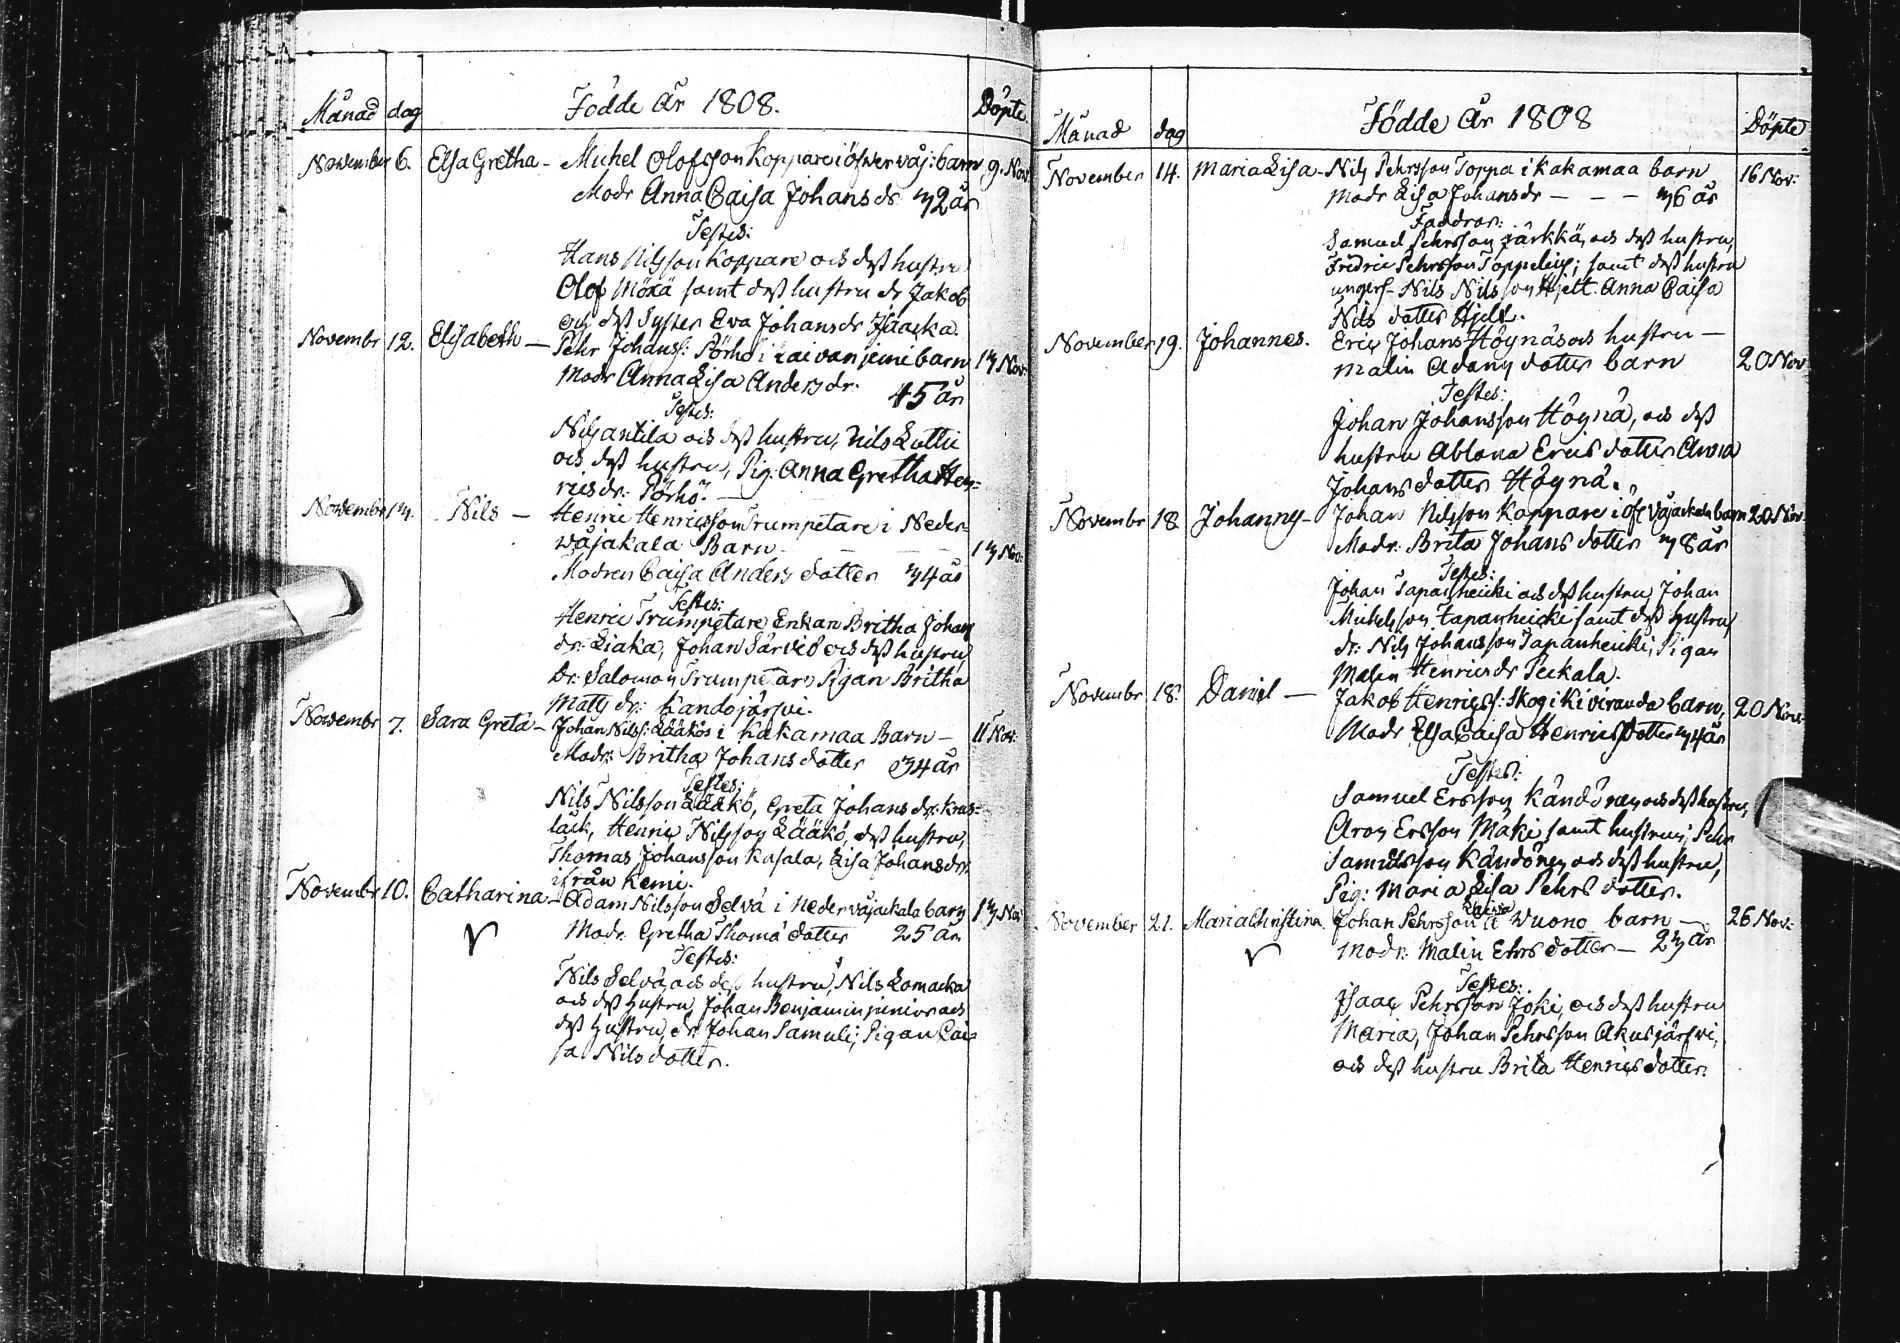 Månad dag Födde År 1808. Döpte
November 6. Elsa Gretha - Michel Olofsson Koppare i öfwer wåj: barn 9. Nov.
Modr Anna Caisa Johans dr 32 år
Testes:
Hans Nilsson Koppare och dess hustru
Olof Möxä samt dess hustru dr Jakob
och dess Syster Eva Johansdr Isaacka.
Novembr 12. Elisabeth — Pehr Johanss: Pörhö i Laivaniemi barn 13 Nov:
Modr Anna Lisa Anders dr. 45 år
Testes:
Nils antila och dess hustru, Nils Luttu
och dess hustru, Pig: Anna Gretha Hen=
ricsdr: Pörhö. —
November 13. Nils — Henric Henricsson Trumpetare i Neder
wåjakala Barn — 13 Nov:
Modren Caisa Anders dotter 34 år
Testes:
Henric Trumpetare Enkan Britha Johans
dr: Liaka, Johan Särvio och dess hustru,
Dr: Salomon Trumpetare, Pigan Britha
Matts dr: Kandojärfvi.
Novembr 7. Sara Greta - Johan Nilss: Lääkös i Kakamaa Barn — 11 Nov:
Modr: Britha Johans dotter 34 år
Testes:
Nils Nilsson Lääkö, Greta Johans dr: Kras=
lack, Henric Nilsson Lääkö, dess hustru,
Thomas Johansson Kasala, Lisa Johansdr:
ifrån Kemi.
Novembr 10. Catharina - Adam Nilsson Selvä i Neder wåjackala barn 13 Nov
Modr. Gretha Thoma dotter 25 år
Testes:
Nils Selvä, och dess hustru, Nils Lomacka
och dess hustru, Johan Benjamin junior och
dess hustru, dr: Johan Samuli; Pigan Cai=
sa Nils dotter.
Månad dag Födde År 1808 Döpte
November 14. Maria Lisa - Nils Pehrsson Toppa i Kakamaa barn 16 Nov:
Modr Lisa Johansdr — — — 36 år
Faddrar:
Samuel Pehrsson Särkkä, och dess hustru,
Fredric Pehrsson Toppelius; samt dess hustru
ungers- Nils Nilsson Hjelt. Anna Caisa
Nils dotter Hjelt.
November 19. Johannes. Eric Johans Höynäs och hustru —
Malin Adams dotter barn 20 Nov
Testes:
Johan Johansson Höynä, och dess
hustru Ablona Erics dotter Anna
Johans dotter Höynä.
Novembr 18 Johannes - Johan Nilsson Koppare i öfr Wåjackala barn 20 Nov.
Modr: Brita Johans dotter 38 år
Testes:
Johan Tapanheicki och dess hustru, Johan
Michelsson Tapanheicki samt dess hustru,
dr: Nils Johansson Tapanheicki; Pigan
Malin Henricsdr Peckala.
Novembr 18. Daniel — Jakob Henricss: Skog i Kiviranda barn, 20 Nov:
Modr Elsa Caisa Henrics Dotter 34 år
Testes:
Samuel Ersson Kandönen och dess hustru,
Aron Ersson Mäki, samt hustrun; Pehr
Samuelsson Kandönen och dess hustru,
Pig: Maria Lisa Pehrs dotter.
November 21. Maria Christina. Johan Pehrsson Wuono barn — 26 Nov:
Modr: Malin Ehrs dotter — 23 år
Testes:
Isaac Pehrsson Joki, och dess hustru
Maria, Johan Pehrsson Akusjärfvi,
och dess hustru Brita Henrics dotter.